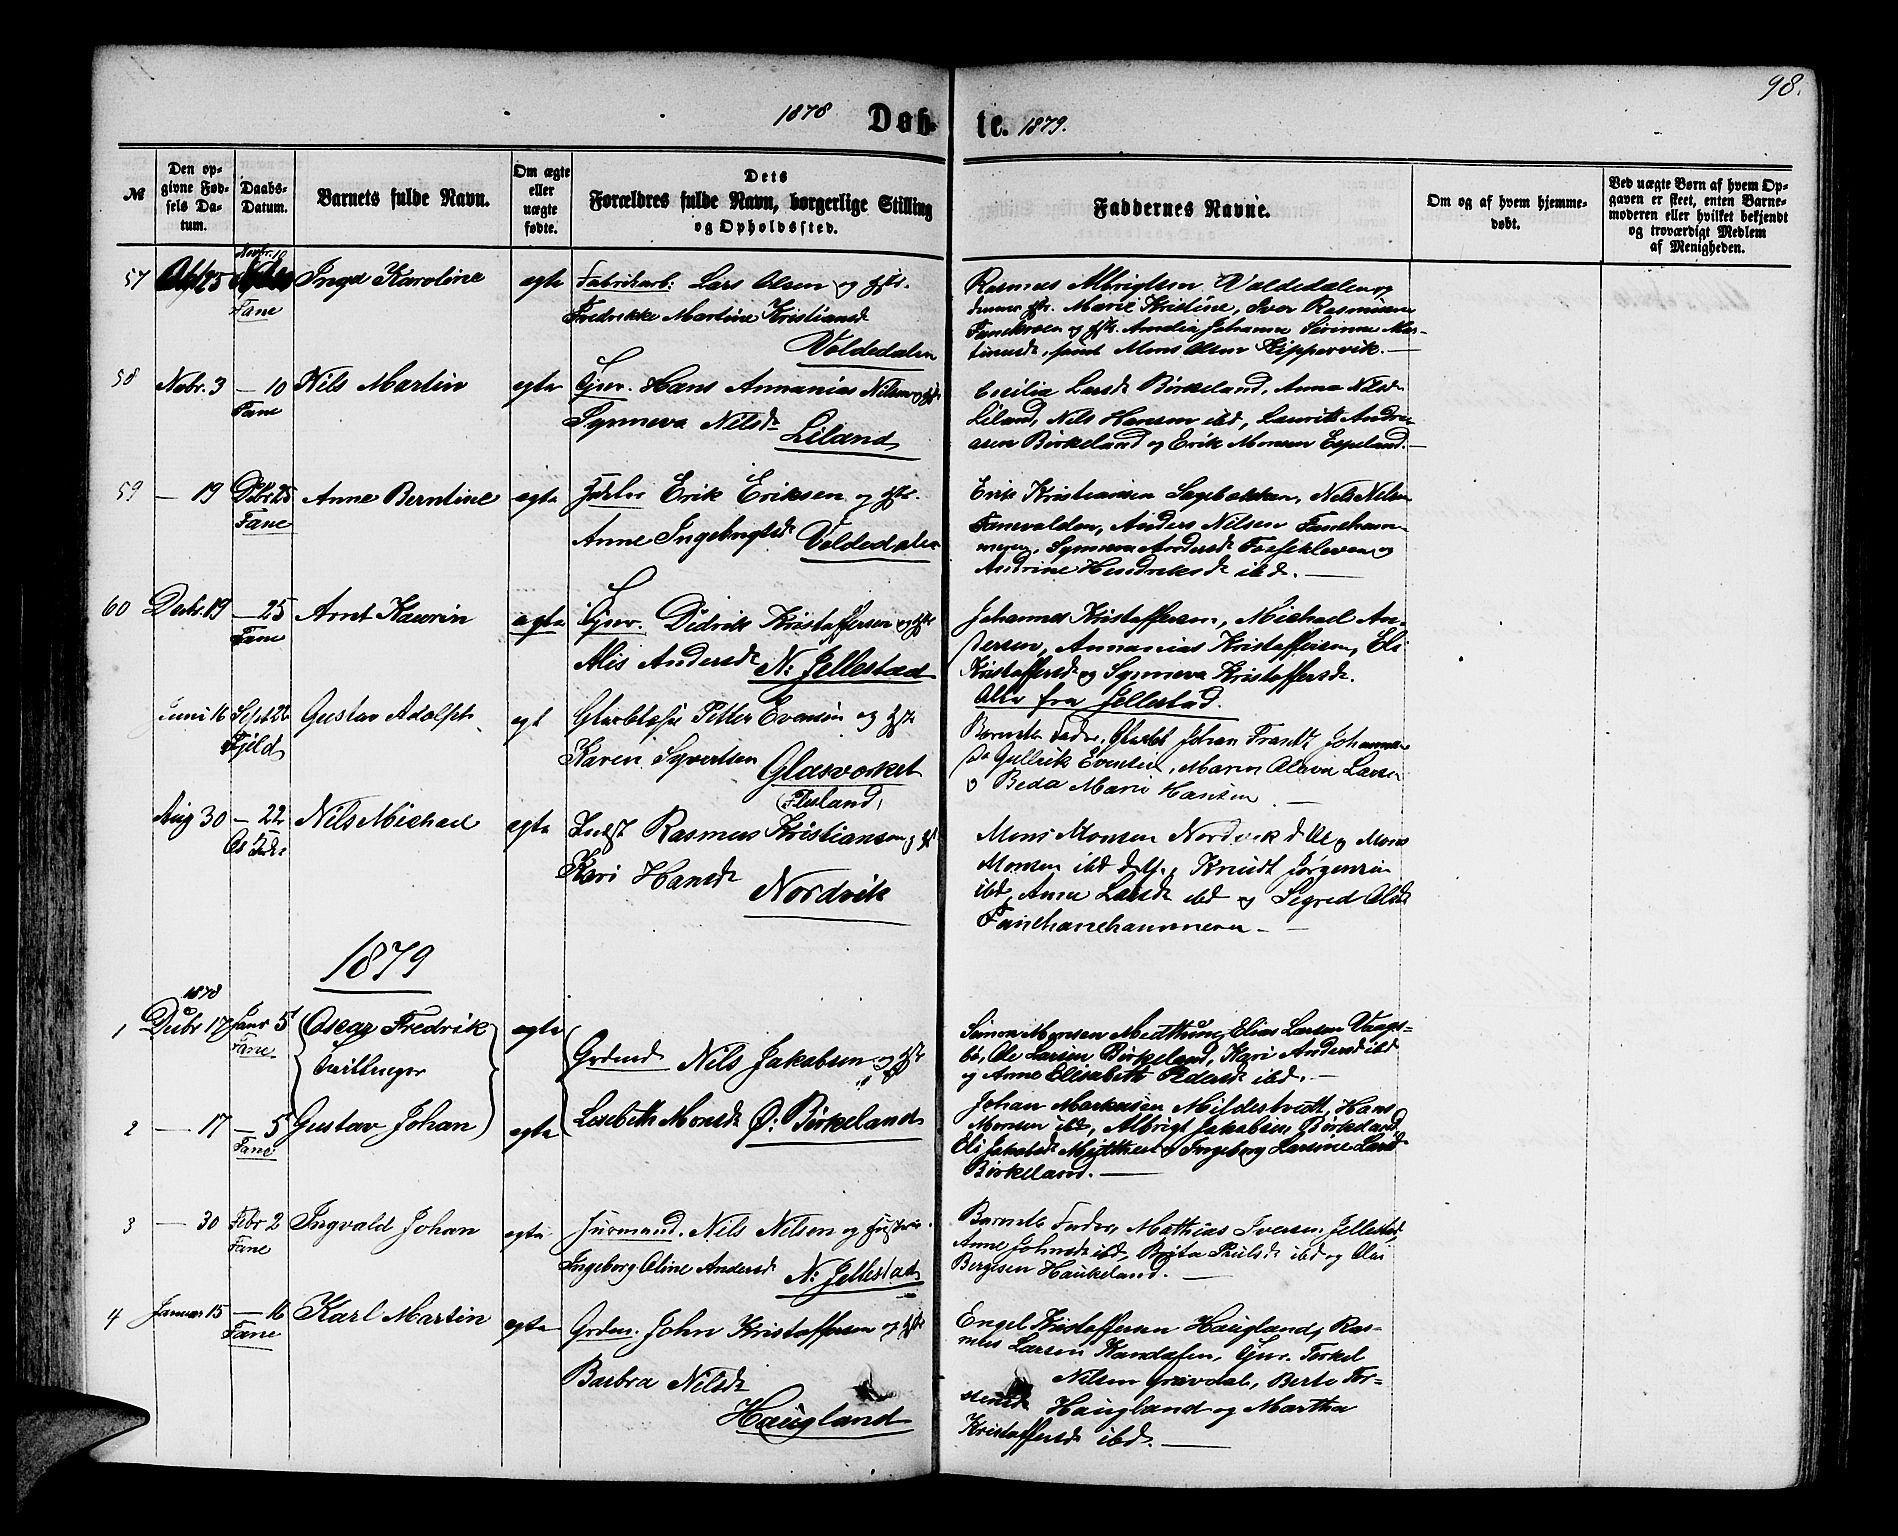 98.
1878 Døb- te. 1879.
№
Den op-
givne Fød-
sels Da-
tum.
Daabs-
Datum.
Barnets fulde Navn.
Om ægte
eller
uægte
fødte.
Dets
Forældres fulde Navn, borgerlige Stilling
og Opholdssted.
Faddernes Navne.
Om og af hvem hjemme-
døbt.
Ved uægte Børn af hvem Op-
gaven er skeet, enten Barne-
moderen eller hvilket bekjendt
og troværdigt Medlem
af Menigheden.
Novbr. 10
57 Okt 25 Fane Inga Karoline egte Fabrikarb: Lars Olsen og
Fredrikke Martine Kristiansd
Voldedalen
Rasmus Albrigtsen Voldedalen og
dennes Marie Kristine, Iver Rasmussen
Fanekroen og Amalia Johanna Severine Mar-
tinusd, samt Mons Olsen Kippervik.
58 Nobr. 3 — 10 Fane Nils Martin egte Gjsv. Hans Annanias Nilsen og
Synneva Nilsd
Liland
Cecilia Larsd Birkeland, Anna Nilsd
Liland, Nils Hansen ibd, Laurits Andre-
assen Birkeland og Erik Monsen Espeland.
59 — 19 Debr. 25 Fane Anne Berntine egte Erik Eriksen og
Anne Ingebrigtsd Voldedalen
Erik Kristiansen Sagebakken, Nels Nelsen
Fanevalden, Anders Nilsen Faneham-
meren, Synneva Andersd Fossekleven og
Andrine Hendriksd ibd.
60 Decbr. 19 — 25 Fane Arnt Kaurin egte Gjsv. Didrik Kristoffersen og
Alis Andersd N: Jellestad
Johannes Kristoffersen, Michael An-
dersen, Annanias Kristoffersen, Eli
Kristoffersd og Synneva Kristoffersd.
Alle fra Jellestad.
Juni 16 Sept 22 Fjeld Gustav Adolph egt Petter Evensen og
Karen Syvertsen Glasværket
(Flesland)
Barnets Fader, Johan Frantz
Gullrik Evensen, Maren Olava Larsen
og Beda Marie Hansen
Aug 30 — 22 Os Nils Michael egte Rasmus Kristiansen og
Kari Hansd
Nordvik
Mons Monsen Nordvik og Mons
Monsen ibd Knudt Jørgensen
ibd, Anne Larsd ibd og Segred Olsd
Fanehammeren
1879
1878
1 Debr 17 Janr 5 Fane Oscar Fredrik
tvillinger
egte Grdmd Nils Jakobsen og
Lisebeth Monsd Ø: Birkeland
Simon Monsen Midthun, Elias Larsen Vaags-
bø, Ole Larsen Birkeland, Kari Andersd ibd
og Anne Elisabeth Pedersd ibd.
2 — 17 — 5 Fane Gustav Johan egte
Johan Markusen Mildestvedt, Hans
Monsen ibd, Albrigt Jakobsen Birkeland,
Eli Jakobsd Midthun og Ingeborg Larsine Larsd
Birkeland.
3 — 30 Febr 2 Fane Ingvald Johan egte Husmand. Nils Nilsen og Hustru
Ingeborg Oline Andersd N: Jellestad
Barnets Fader, Mathias Iversen Jellestad,
Anne Johnsd ibd, Brita Paulsd ibd og Ole
Bergesen Haukeland.
4 Januar 15 — 16 Fane Karl Martin egte Grdm. John Kristoffersen og
Barbra Nilsd
Haugland
Engel Kristoffersen Haugland, Ras-
mus Larsen Kandalen, Gjsv. Terkel
Nilsen Gravdal, Berte Tor-
stensd Haugland og Martha
Kristoffersd ibd.